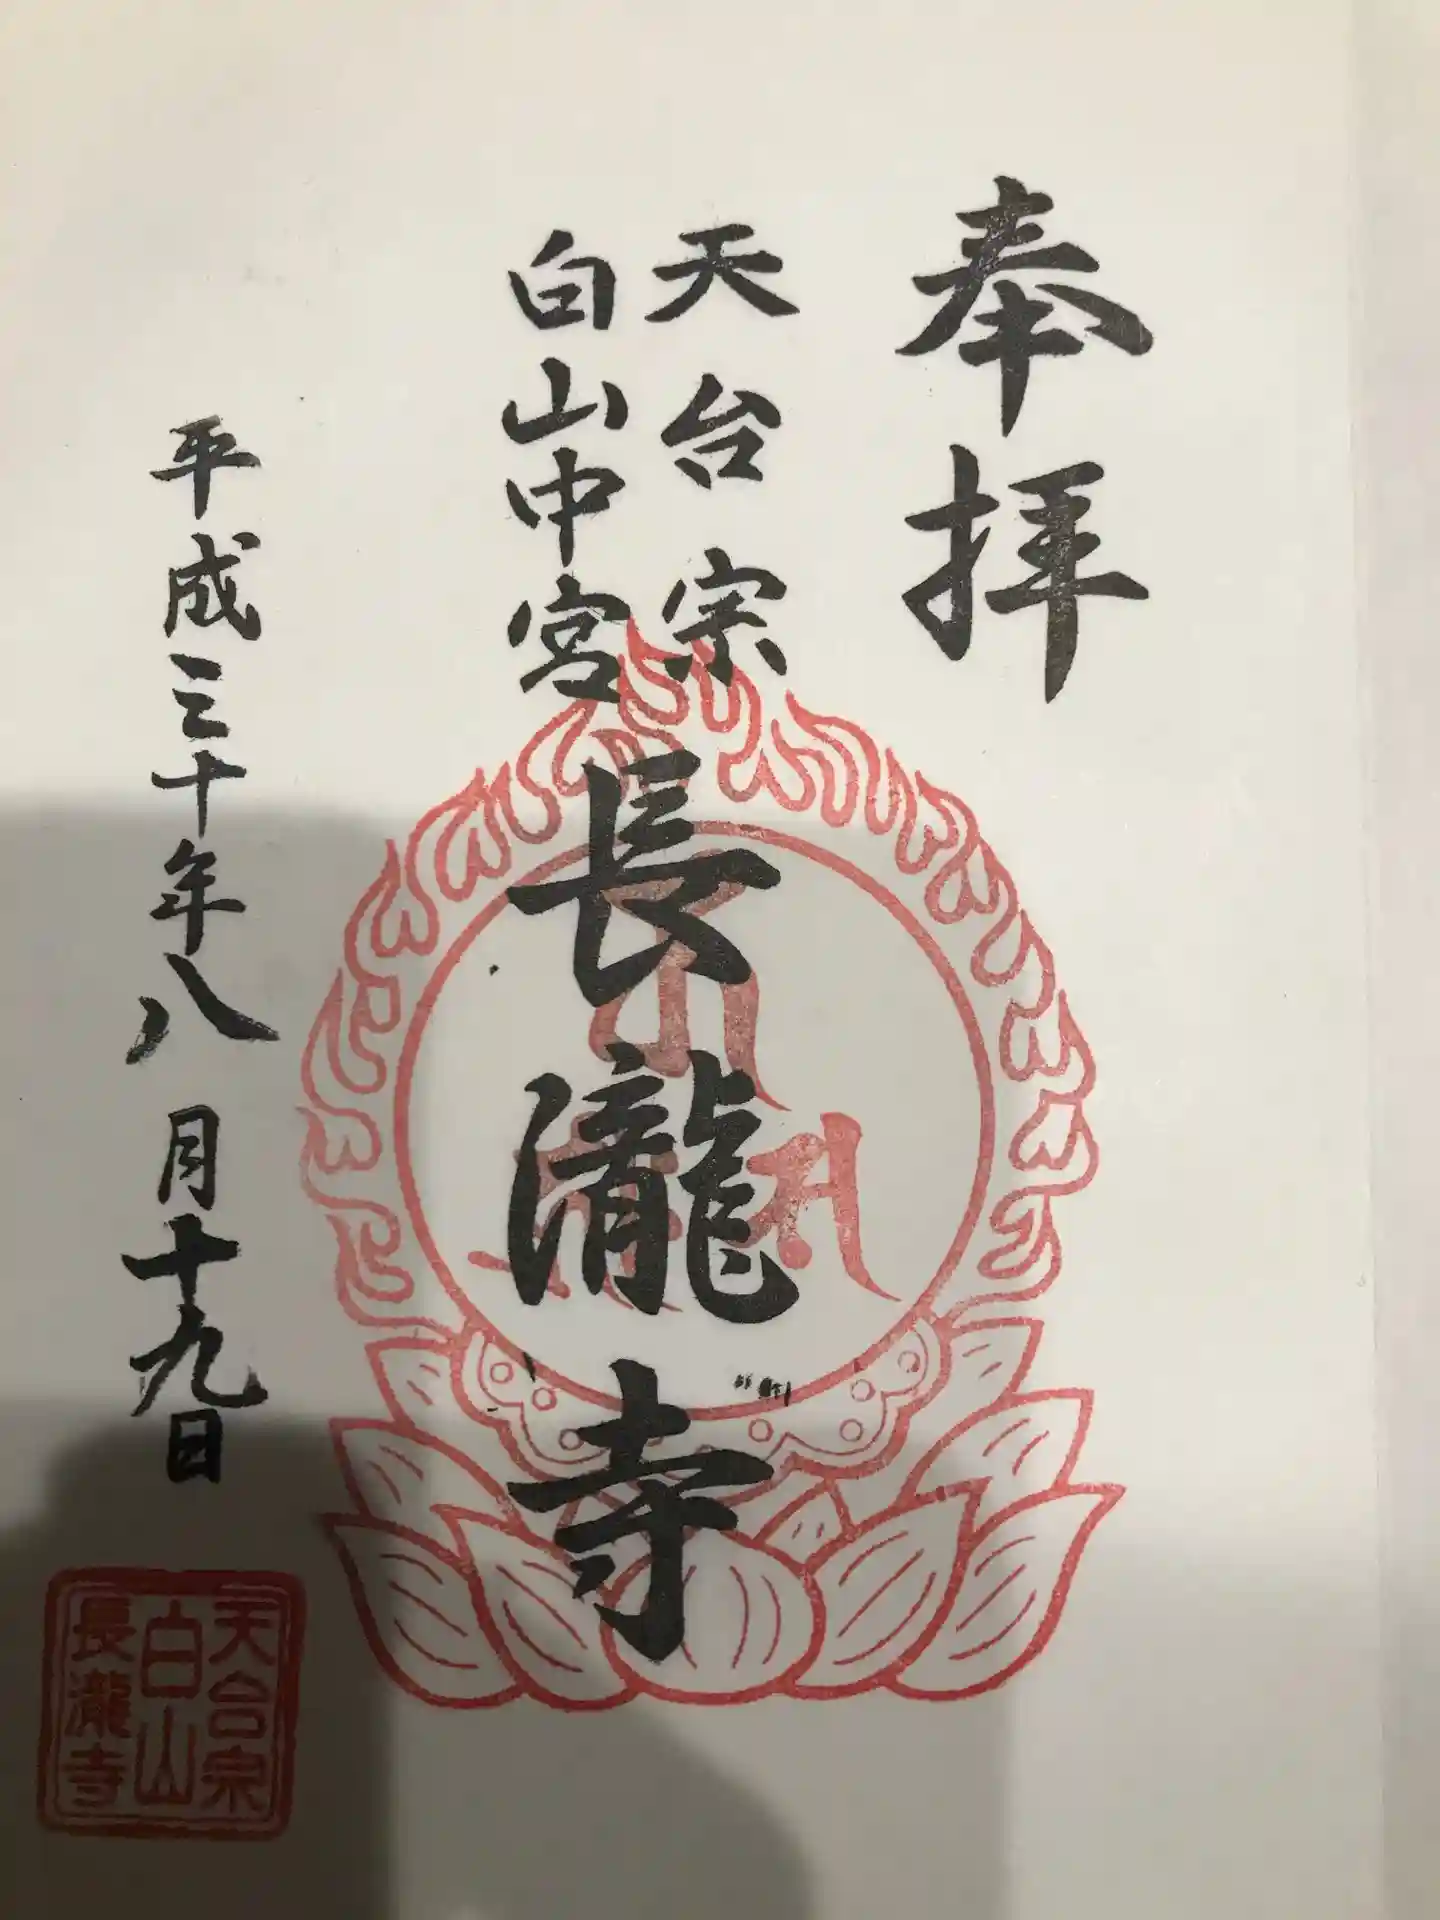 奉拝
天台宗
白山中宮
長瀧寺
平成三十年八月十九日
天台宗
白山
長瀧寺